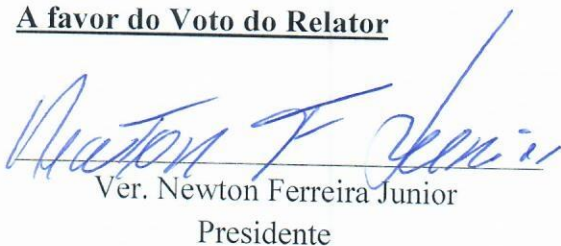 A favor do Voto do Relator
Newton F Junior
Ver. Newton Ferreira Junior
Presidente